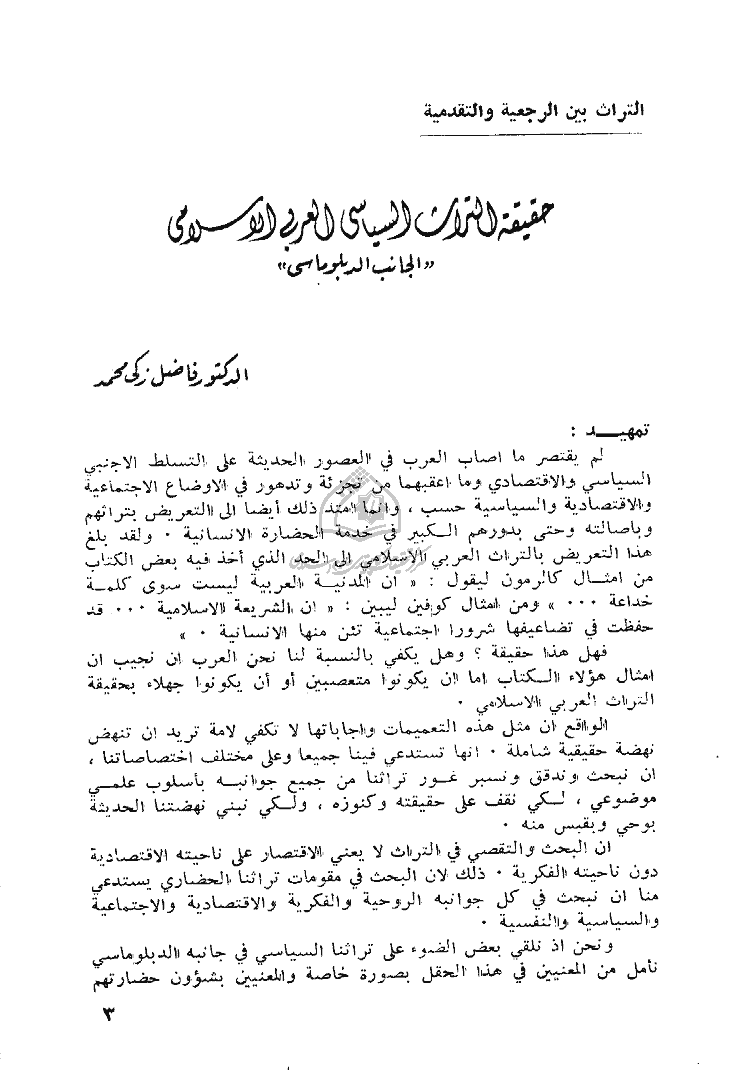 التراث بين الرجعية والتقدمية
حقيقة التراث السياسي العربي الاسلامي
«الجانب الدبلوماسي»
الدكتور فاضل زكي محمد
تمهيــد :
لم يقتصر ما اصاب العرب في العصور الحديثة على التسلط الاجنبي
السياسي والاقتصادي وما اعقبهما من تجزئة وتدهور في الاوضاع الاجتماعية
والاقتصادية والسياسية حسب ، وانما امتد ذلك أيضا الى التعريض بتراثهم
وباصالته وحتى بدورهم الكبير في خدمة الحضارة الانسانية ٠ ولقد بلغ
هذا التعريض بالتراث العربي الاسلامي الى الحد الذي أخذ فيه بعض الكتاب
من امثال كالرمون ليقول : « ان المدنية العربية ليست سوى كلمة
خداعة ٠٠٠ » ومن امثال كوفين ليبين : « ان الشريعة الاسلامية ٠٠٠ قد
حفظت في تضاعيفها شرورا اجتماعية تئن منها الانسانية ٠ »
فهل هذا حقيقة ؟ وهل يكفي بالنسبة لنا نحن العرب ان نجيب ان
امثال هؤلاء الكتاب اما ان يكونوا متعصبين أو أن يكونوا جهلاء بحقيقة
التراث العربي الاسلامي ٠
الواقع ان مثل هذه التعميمات واجاباتها لا تكفي لامة تريد ان تنهض
نهضة حقيقية شاملة ٠ انها تستدعي فينا جميعا وعلى مختلف اختصاصاتنا ،
ان نبحث وندقق ونسبر غور تراثنا من جميع جوانبه بأسلوب علمي
موضوعي ، لكي نقف على حقيقته وكنوزه ، ولكي نبني نهضتنا الحديثة
بوحي وبقبس منه ٠
ان البحث والتقصي في التراث لا يعني الاقتصار على ناحيته الاقتصادية
دون ناحيته الفكرية ٠ ذلك لان البحث في مقومات تراثنا الحضاري يستدعي
منا ان نبحث في كل جوانبه الروحية والفكرية والاقتصادية والاجتماعية
والسياسية والنفسية ٠
ونحن اذ نلقي بعض الضوء على تراثنا السياسي في جانبه الدبلوماسي
نأمل من المعنيين في هذا الحقل بصورة خاصة والمعنيين بشؤون حضارتهم
٣